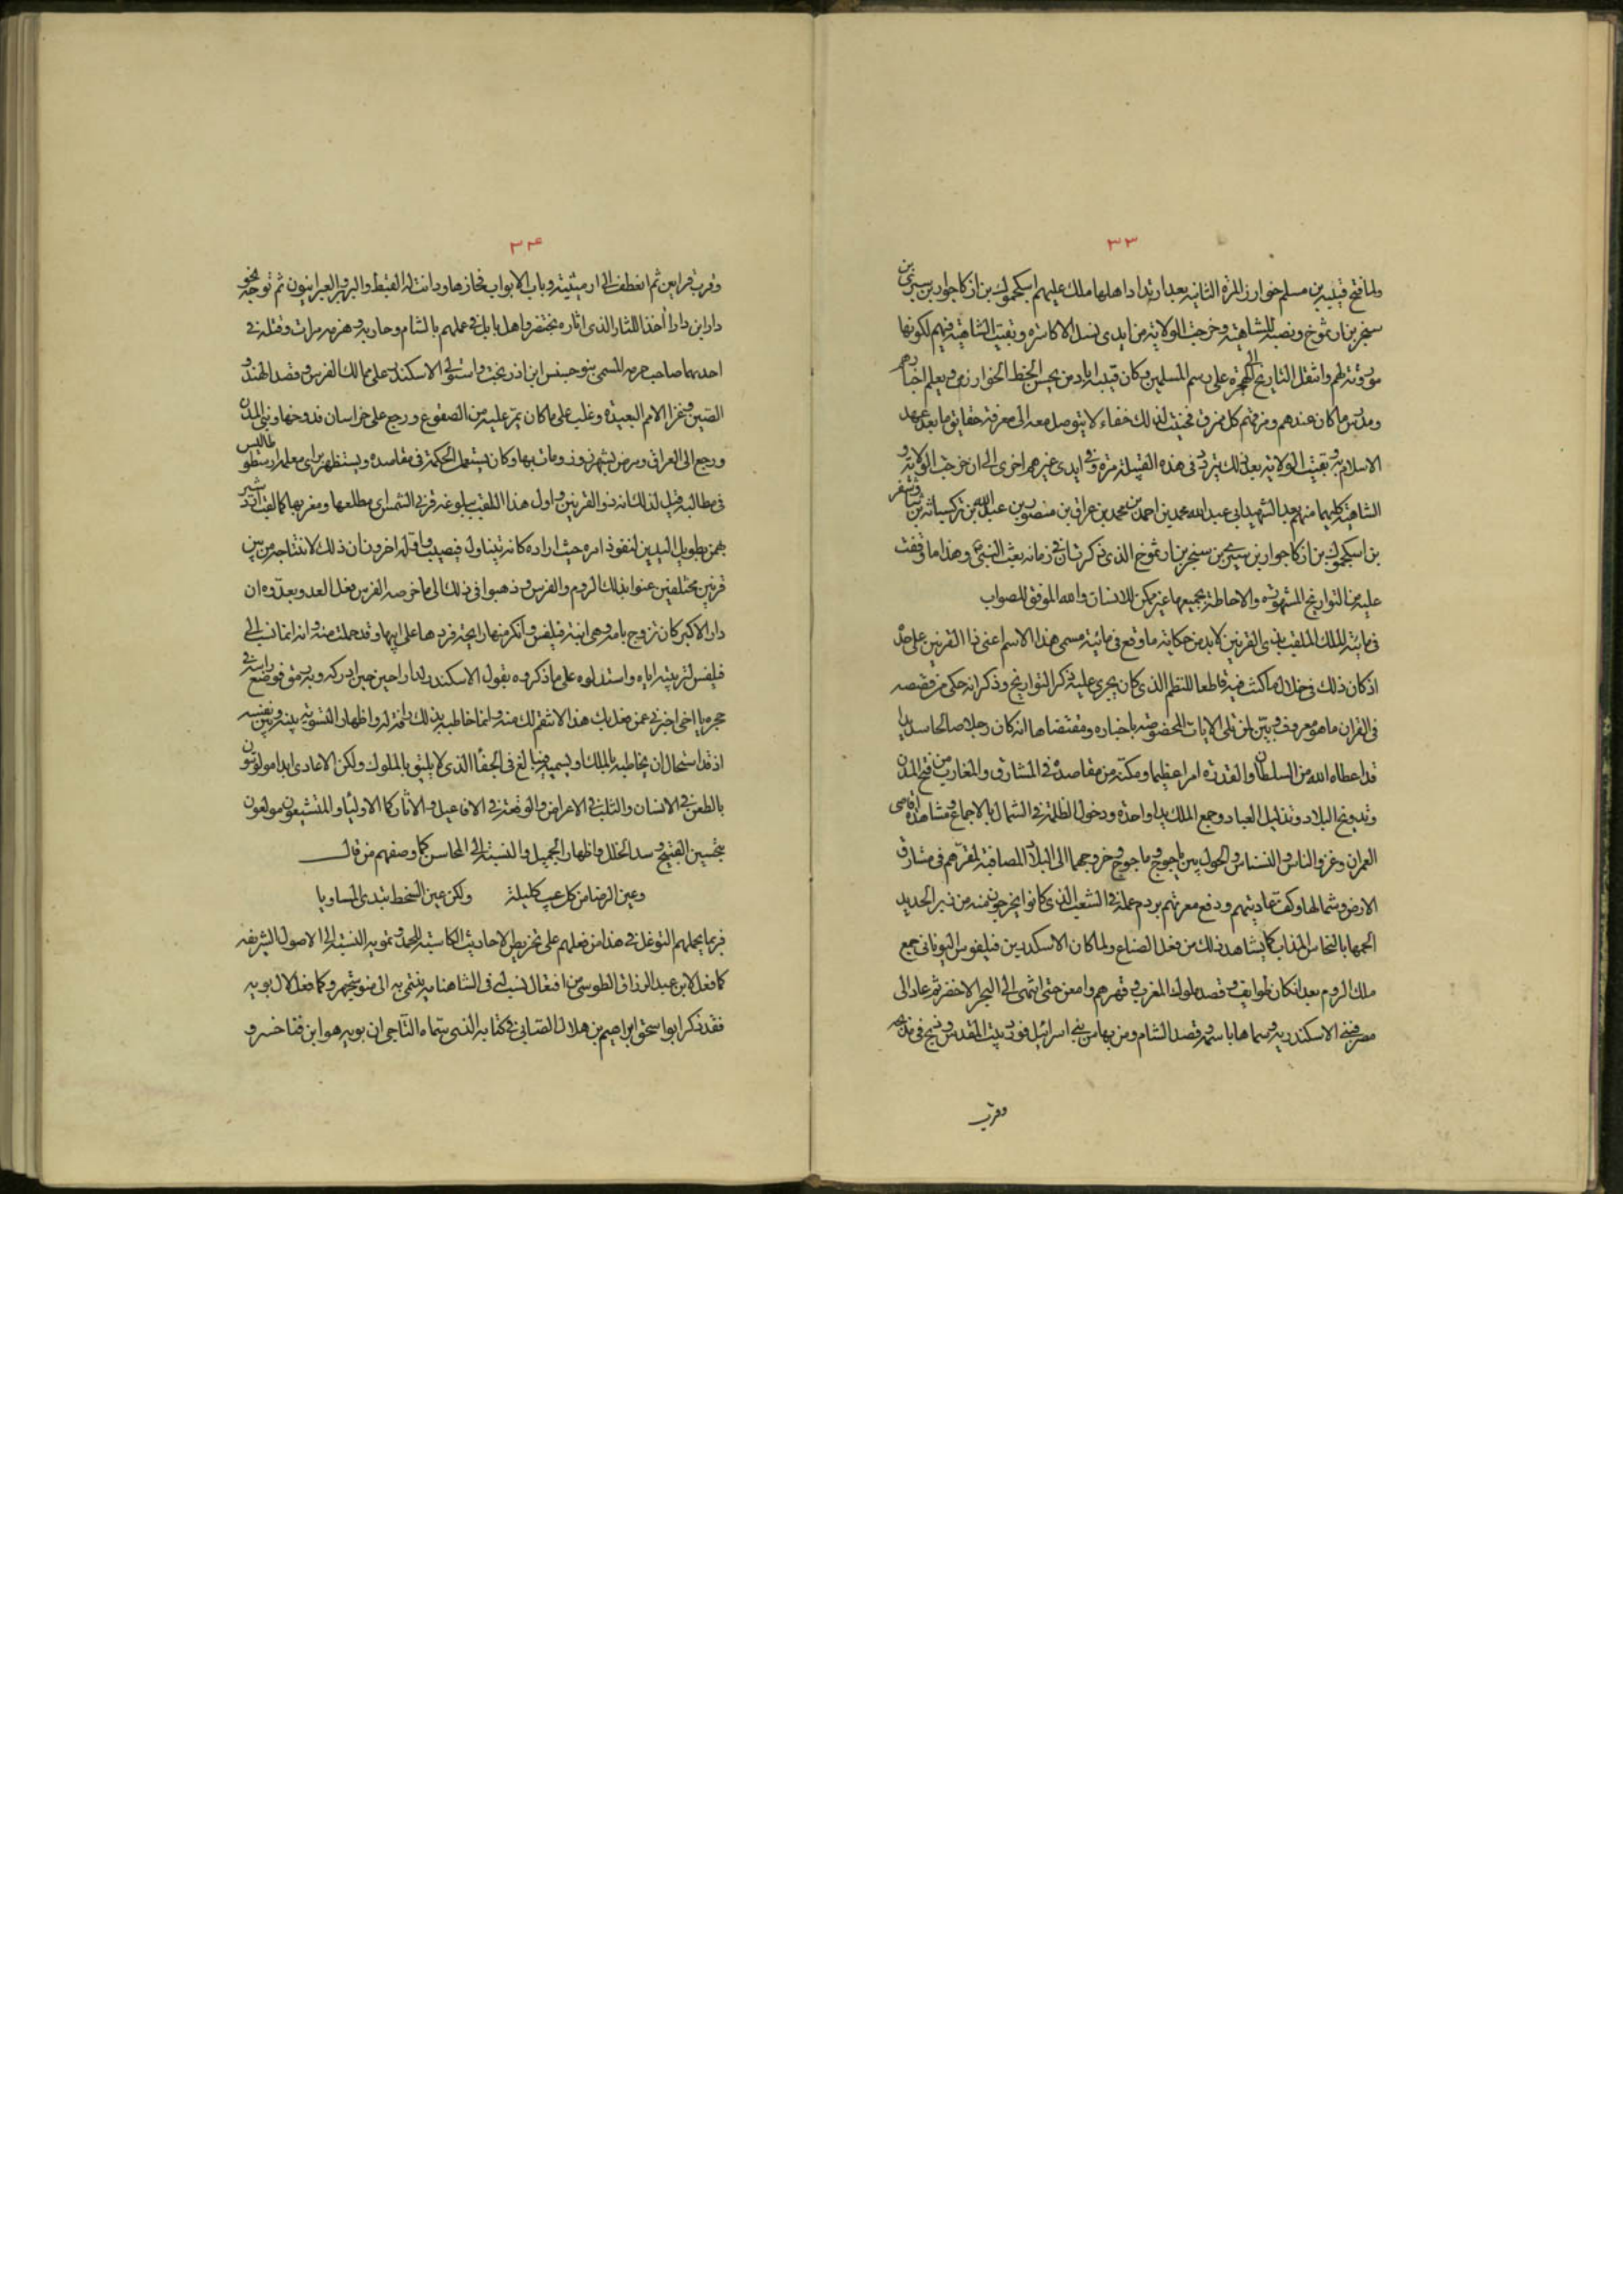 ٣٣
ولما فتح قتيبة بن مسلم خوارزم المرة الثانية بعد ارتداد اهلها ملك عليهم اسكجموك بن ازكاجوار بن سبرى بن
سخر بن ارثموخ ونصبه للشاهية وخرجت الولاية من ايدى نسل الاكاسرة وبقيت الشاهية فيهم لكونها
موروثة لهم وانتقل التاريخ الى الهجرة على رسم المسلمين وكان قتيبة اباد من يحسن الخط الخوارزمى ويعلم اخبارهم
ويدرس ما كان عندهم ومزقهم كل ممزق فخفيت لذلك خفاء لا يتوصل معه الى معرفة حقايق ما بعد عهد
الاسلام به وبقيت الولاية بعد ذلك تتردد فى هذه القبيلة مرة وفى ايدى غيرهم اخرى الى ان خرجت الولاية و
الشاهية كليهما منهم بعد الشهيد ابى عبد الله محمد بن احمد بن محمد بن عراق بن منصور بن عبد الله بن تركسباثة بن شاوشفر
بن اسكجموك بن ازكاجوار بن سبرى بن سخر بن ارثموخ الذى ذكرت ان فى زمانه بعث النبى ع وهذا ما وقفت
عليه من التواريخ المشهورة والاحاطة بجميعها غير ممكن للانسان والله الموفق للصواب
فى مائية الملك الملقب بذى القرنين لا بد من حكاية ما وقع فى مائية مسمى هذا الاسم اعنى ذا القرنين على حدة
اذ كان ذلك فى خلال ما كنت فيه قاطعا للنظم الذى كان يجرى عليه ذكر التواريخ وذكر انه حكى من قصصه
فى القران ما هو معروف وبين لمن تلى الايات المخصوصة باخباره ومقتضاها انه كان رجلا صالحا سديدا
قد اعطاه الله من السلطان والقدرة امرا عظيما ومكنه من مقاصده فى المشارق والمغارب من فتح المدن
وتدويخ البلاد وتذليل العباد وجمع الملك يدا واحدة ودخول الظلمة فى الشمال بالاجماع ومشاهدة اقاصى
العمران وغزو الناس والنسناس والحول بين ياجوج وماجوج وخروجهما الى البلاد المصاقبة لمقرهم فى مشارق
الارض وشمالها وكف عاديتهم ودفع معرتهم بردم عمله فى الشعب الذى كانوا يخرجون منه من زبر الحديد
الحمها بالنحاس المذاب كما يشاهد ذلك من فعل الصناع ولما كان الاسكندر بن فيلفوس اليونانى جمع
ملك الروم بعد ان كان طوايف وقصد ملوك المغرب وقهرهم وامعن حتى انتهى الى البحر الاخضر ثم عاد الى
مصر فبنى الاسكندرية وسماها باسمه وقصد الشام ومن بها من بنى اسرائيل فورد بيت المقدس وذبح فى مذبحه
وقرب
٣٤
وقرب قرابين ثم انعطف الى ارمينية وباب الابواب فجازها ودانت له القبط والبربر والعبرانيون ثم توجه نحو
دارا بن دارا اخذا للثار الذى اثاره بختنصر واهل بابل فى عملهم بالشام وحاربه وهزمه مرات وقتله فى
احديهما صاحب حرسه المسمى بنوجشنس ابن اذربخت واستولى الاسكندر على ممالك الفرس وقصد الهند و
الصين وغزا الامم البعيدة وغلب على ما كان يمر عليه من الصقوع ورجع على خراسان فدوخها وبنى المدن
ورجع الى العراق ومرض بشهرزور ومات بها وكان يستعمل الحكمة فى مقاصده ويستظهر براى معلمه ارسطوطاليس
فى مطالبه فقيل لذلك انه ذو القرنين واول هذا اللقب ببلوغه قرنى الشمس اى مطلعها ومغربها كما لقب اردشير
بهمن بطويل اليدين لنفوذ امره حيث اراده كانه يتناوله فيصيب واوله اخرون ان ذلك لانتتاجه من بين
قرنين مختلفين عنوا بذلك الروم والفرس وذهبوا فى ذلك الى ما خرصه الفرس فعل العدو بعدوه ان
دارا الاكبر كان تزوج بامه وهى ابنة فيلفس وانكر منها رايحة فردها على ابيها وقد حملت منه وانه انما نسب الى
فيلفس لتربيته اياه واستدلوا على ما ذكروه بقول الاسكندر لدارا حين ادركه وبه رمق فوضع راسه فى
حجره يا اخى اخبرنى عمن فعل بك هذا لانتقم لك منه وانما خاطبه بذلك رافة له واظهار التسوية بينه وبين نفسه
اذ قد استحال ان يخاطبه بالملك او يسميه فيبالغ فى الجفاء الذى لا يليق بالملوك ولكن الاعادى ابدا مولوعون
بالطعن فى الانسان والثلب فى الاعراض والوقيعة فى الافاعيل والاثار كما الاولياء والمتشيعون مولعون
بتحسين القبيح وسد الخلل واظهار الجميل والنسبة الى المحاسن كما وصفهم من قال
وعين الرضا من كل عيب كليلة ولكن عين السخط تبدى المساويا
فربما يحملهم التوغل فى هذا من فعلهم على تخريص الاحاديث الكاسبة للحمد وتمويه النسبة الى الاصول الشريفة
كما فعل لابن عبد الرزاق الطوسى من افتعال نسب له فى الشاهنامه ينتمى به الى منوشجهر وكما فعل لال بويه
فقد ذكر ابو اسحق ابراهيم بن هلال الصابى فى كتابه الذى سماه التاجى ان بويه هو ابن فناخسرو